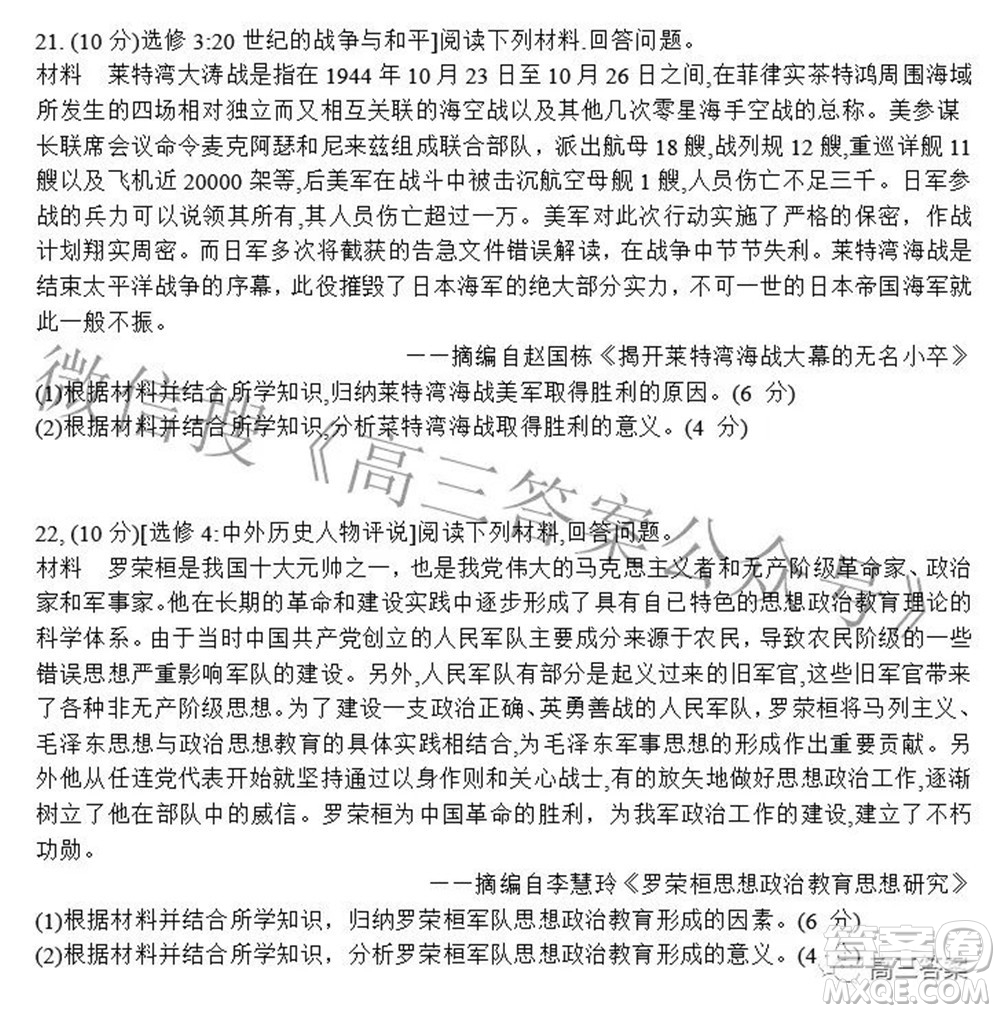 21. (10 分)选修 3:20 世纪的战争与和平]阅读下列材料.回答问题。
材料 莱特湾大涛战是指在 1944 年 10 月 23 日至 10 月 26 日之间,在菲律实茶特鸿周围海域
所发生的四场相对独立而又相互关联的海空战以及其他几次零星海手空战的总称。美参谋
长联席会议命令麦克阿瑟和尼来兹组成联合部队，派出航母 18 艘,战列规 12 艘,重巡详舰 11
艘以及飞机近 20000 架等,后美军在战斗中被击沉航空母舰 1 艘,人员伤亡不足三千。日军参
战的兵力可以说领其所有,其人员伤亡超过一万。美军对此次行动实施了严格的保密，作战
计划翔实周密。而日军多次将截获的告急文件错误解读，在战争中节节失利。莱特湾海战是
结束太平洋战争的序幕，此役摧毁了日本海军的绝大部分实力，不可一世的日本帝国海军就
此一般不振。
——摘编自赵国栋《揭开莱特湾海战大幕的无名小卒》
(1)根据材料并结合所学知识,归纳莱特湾海战美军取得胜利的原因。(6 分)
(2)根据材料并结合所学知识,分析莱特湾海战取得胜利的意义。(4 分)
22, (10 分)[选修 4:中外历史人物评说]阅读下列材料,回答问题。
材料 罗荣桓是我国十大元帅之一，也是我党伟大的马克思主义者和无产阶级革命家、政治
家和军事家。他在长期的革命和建设实践中逐步形成了具有自己特色的思想政治教育理论的
科学体系。由于当时中国共产党创立的人民军队主要成分来源于农民，导致农民阶级的一些
错误思想严重影响军队的建设。另外,人民军队有部分是起义过来的旧军官,这些旧军官带来
了各种非无产阶级思想。为了建设一支政治正确、英勇善战的人民军队，罗荣桓将马列主义、
毛泽东思想与政治思想教育的具体实践相结合,为毛泽东军事思想的形成作出重要贡献。另
外他从任连党代表开始就坚持通过以身作则和关心战士,有的放矢地做好思想政治工作,逐渐
树立了他在部队中的威信。罗荣桓为中国革命的胜利，为我军政治工作的建设,建立了不朽
功勋。
——摘编自李慧玲《罗荣桓思想政治教育思想研究》
(1)根据材料并结合所学知识，归纳罗荣桓军队思想政治教育形成的因素。(6 分)
(2)根据材料并结合所学知识，分析罗荣桓军队思想政治教育形成的意义。(4
微信搜《高三答案公众号》
高三答案
答案圈
MXQE.COM